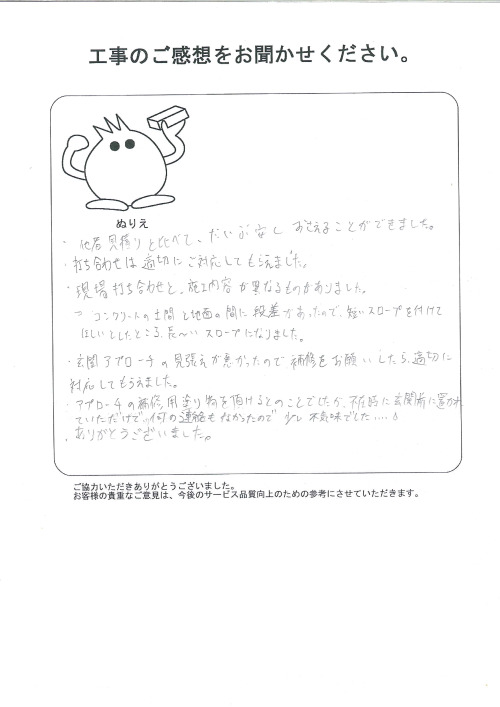 工事のご感想をお聞かせください。
ぬりえ
・他店見積りと比べて、だいぶ安し おさえることができました。
・打ち合わせは適切にご対応してもらえました。
・現場打ち合わせと、施工内容が異なるものがありました。
コンクリートの土間と地面の間に段差があったので、短いスロープを付けて
ほしいとしたところ、長〜いスロープになりました。
・玄関アプローチの見張えが悪かったので補修をお願いしたら、適切に
対応してもらえました。
・アプローチの補修用塗り物を頂けるとのことでしたが、不在時に玄関前に置かれ
ていただけで、何の連絡もなかったので少し不気味でした....
・ありがとうございました。
ご協力いただきありがとうございました。
お客様の貴重なご意見は、今後のサービス品質向上のための参考にさせていただきます。